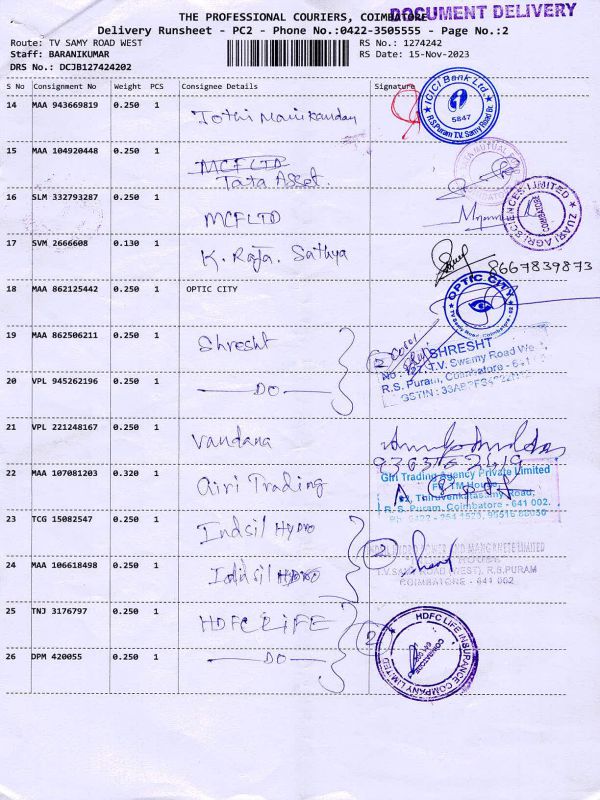 THE PROFESSIONAL COURIERS, COIMBATORE
DOCUMENT DELIVERY
Delivery Runsheet - PC2 - Phone No.:0422-3505555 - Page No.:2
Route: TV SAMY ROAD WEST
RS No.: 1274242
Staff: BARANIKUMAR
RS Date: 15-Nov-2023
DRS No.: DCJB127424202
S No Consignment No Weight PCS Consignee Details Signature
14 MAA 943669819 0.250 1 Jothi Manikandan
ICICI Bank Ltd.
5847
R.S.Puram T.V. Samy Road Br.
15 MAA 104920448 0.250 1 MCFLTD
Tata Asset.
16 SLM 332793287 0.250 1 MCFLTD
ZUARI AGRI SCIENCES LIMITED
COIMBATORE
17 SVM 2666608 0.130 1 K. Raja. Sathya
8667839873
18 MAA 862125442 0.250 1 OPTIC CITY
OPTIC CITY
19 MAA 862506211 0.250 1 Shresht
2
SHRESHT
T.V. Swamy Road
R.S. Puram, Coimbatore - 641
GSTIN :
20 VPL 945262196 0.250 1 DO
21 VPL 221248167 0.250 1 Vandana
22 MAA 107081203 0.320 1 Giri Trading
Giri Trading Agency Private Limited
TM House,
Thiruvenkatasamy Road,
R. S. Puram, Coimbatore - 641 002.
23 TCG 15082547 0.250 1 Indsil Hydro
2
24 MAA 106618498 0.250 1 Indsil Hydro
R.S.PURAM
COIMBATORE - 641 002
25 TNJ 3176797 0.250 1 HDFC LIFE
2
HDFC LIFE INSURANCE COMPANY LIMITED
COIMBATORE
26 DPM 420055 0.250 1 DO